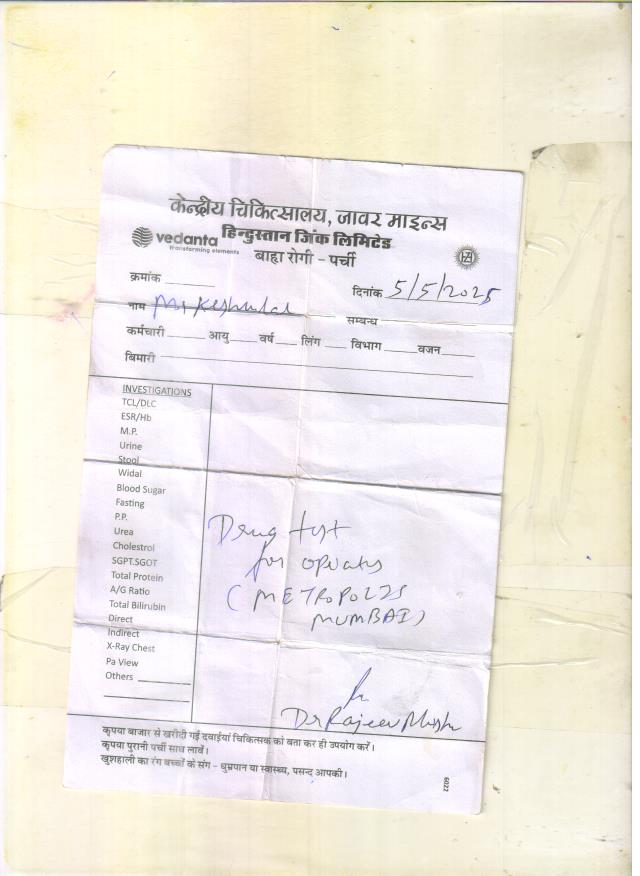 केन्द्रीय चिकित्सालय, जावर माइन्स
vedanta हिन्दुस्तान जिंक लिमिटेड
transforming elements
बाह्य रोगी - पर्ची
क्रमांक ______ दिनांक 5/5/2025
नाम Mr Keshulal सम्बन्ध
कर्मचारी ______ आयु ____ वर्ष ____ लिंग ____ विभाग _____ वजन _____
बिमारी
INVESTIGATIONS
TCL/DLC
ESR/Hb
M.P.
Urine
Stool
Widal
Blood Sugar
Fasting
P.P.
Urea
Cholestrol
SGPT.SGOT
Total Protein
A/G Ratio
Total Bilirubin
Direct
Indirect
X-Ray Chest
Pa View
Others
Drug test
for opiates
(METROPOLIS
MUMBAI)
Dr Rajeev
कृपया बाजार से खरीदी गई दवाईयां चिकित्सक को बता कर ही उपयोग करें।
कृपया पुरानी पर्ची साथ लावें।
खुशहाली का रंग बच्चों के संग - धुम्रपान या स्वास्थ्य, पसन्द आपकी।
6022